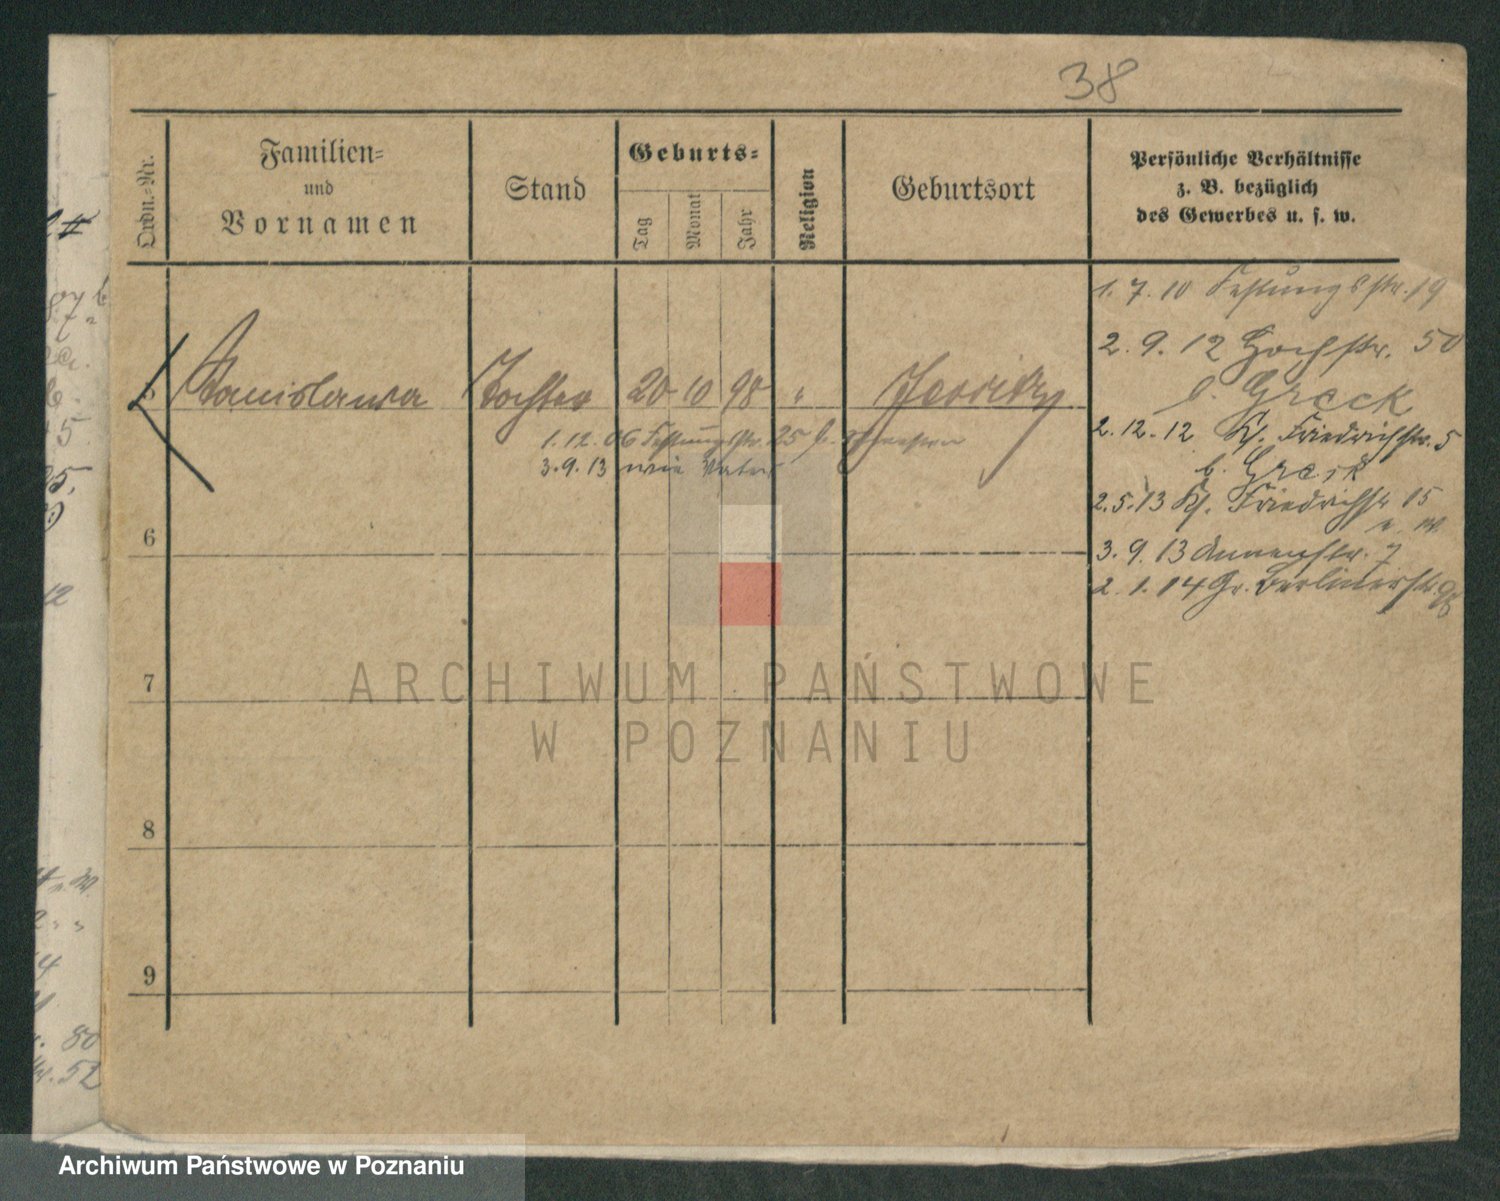 38
Ordn.-Nr.
Familien-
und
Vornamen
Stand
Geburts-
Tag
Monat
Jahr
Religion
Geburtsort
Persönliche Verhältnisse
z. B. bezüglich
des Gewerbes u. s. w.
1. 7. 10 Festungsstr. 19
2. 9. 12 Hochstr. 50
b. Greck
5 Stanislawa Tochter 20 10 98 "
1. 12. 06 Festungsstr. 25 b.
3. 9. 13 wie Vater
2. 12. 12 Kl. Friedrichstr. 5
b. Greck
2. 5. 13 Kl. Friedrichstr 15
3. 9. 13 Annenstr. 7
2. 1. 14 Gr. Berlinerstr 98
6
7
8
9
ARCHIWUM PAŃSTWOWE
W POZNANIU
12
80
52
Archiwum Państwowe w Poznaniu